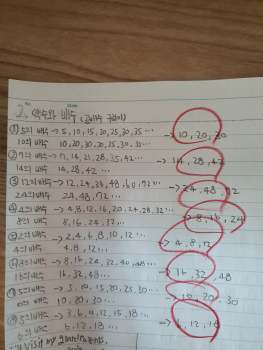 2. 약수와 배수 (공배수 구하기)
① 5의 배수 → 5, 10, 15, 20, 25, 30, 35 ... → 10, 20, 30
10의 배수 10, 20, 30, 20, 25, 30, 35 ...
② 7의 배수 → 7, 14, 21, 28, 35, 42 ... → 14, 28, 42
14의 배수 14, 28, 42 ...
③ 12의 배수 → 12, 24, 36, 48, 60, 72 ... → 24, 48, 72
24의 배수 24, 48, 72 ...
④ 4의 배수 → 4, 8, 12, 16, 20, 24, 28, 32 ... → 8, 16, 24
8의 배수 8, 16, 24, 32 ...
⑤ 2의 배수 → 2, 4, 6, 8, 10, 12 ... → 4, 8, 12
4의 배수 4, 8, 12 ...
8, 16, 24, 32, 40, 48 ... → 16, 32, 48
16의 배수 16, 32, 48 ...
5의 배수 → 5, 10, 15, 20, 25, 30 ... → 10, 20, 30
10, 20, 30 ...
3의 배수 → 3, 6, 9, 12, 15, 18 ... → 6, 12, 18
6의 배수 6, 12, 18 ...
visit my grandparents,